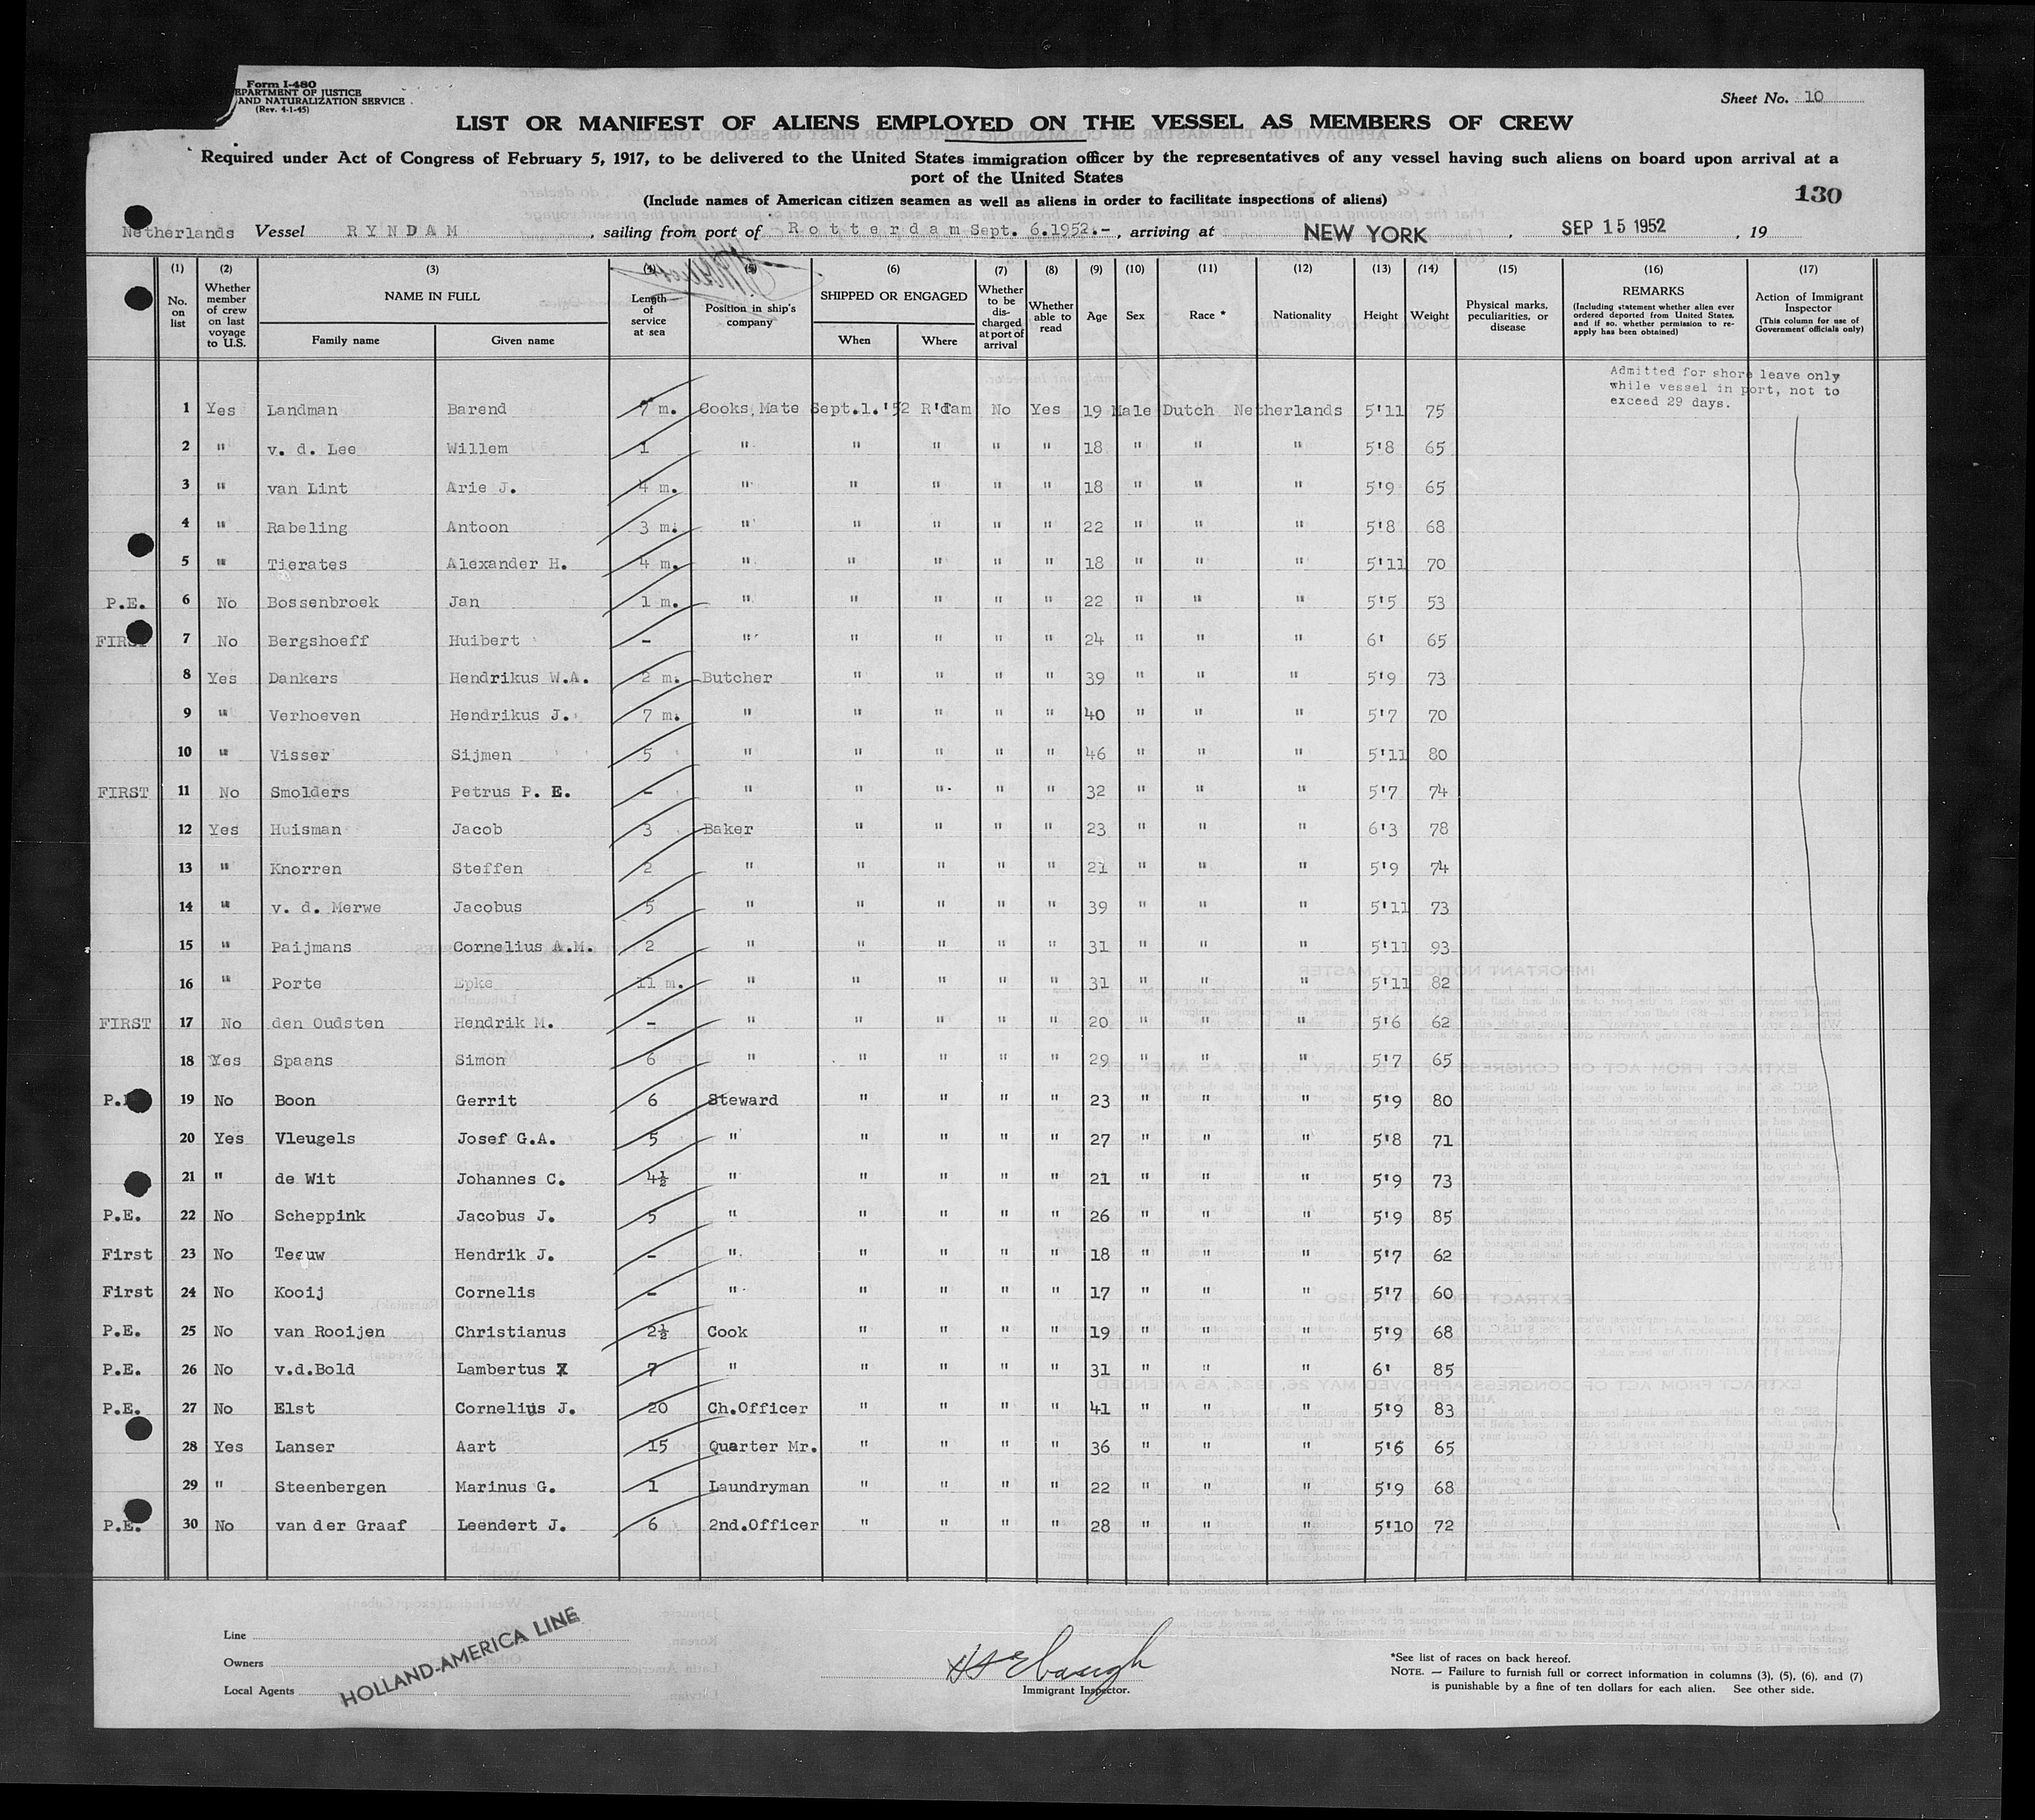 Form I-480
EPARTMENT OF JUSTICE
AND NATURALIZATION SERVICE
(Rev. 4-1-45)
Sheet No. 10
LIST OR MANIFEST OF ALIENS EMPLOYED ON THE VESSEL AS MEMBERS OF CREW
Required under Act of Congress of February 5, 1917, to be delivered to the United States immigration officer by the representatives of any vessel having such aliens on board upon arrival at a
port of the United States
(Include names of American citizen seamen as well as aliens in order to facilitate inspections of aliens)
130
Netherlands Vessel RYNDAM, sailing from port of Rotterdam Sept. 6.1952.-, arriving at NEW YORK, SEP 15 1952, 19
(1) (2) (3) (4) (5) (6) (7) (8) (9) (10) (11) (12) (13) (14) (15) (16) (17)
No. on list
Whether member of crew on last voyage to U.S.
NAME IN FULL
Family name Given name
Length of service at sea
Position in ship's company
SHIPPED OR ENGAGED
When Where
Whether to be discharged at port of arrival
Whether able to read
Age Sex Race * Nationality Height Weight
Physical marks, peculiarities, or disease
REMARKS
(Including statement whether alien ever ordered deported from United States, and if so, whether permission to reapply has been obtained)
Action of Immigrant Inspector
(This column for use of Government officials only)
Admitted for shore leave only
while vessel in port, not to
exceed 29 days.
1 Yes Landman Barend 7 m. Cooks Mate Sept.1.'52 R'dam No Yes 19 Male Dutch Netherlands 5'11 75
2 " v. d. Lee Willem 1 " " " " " 18 " " " 5'8 65
3 " van Lint Arie J. 4 m. " " " " " 18 " " " 5'9 65
4 " Rabeling Antoon 3 m. " " " " " 22 " " " 5'8 68
5 " Tierates Alexander H. 4 m. " " " " " 18 " " " 5'11 70
P.E. 6 No Bossenbroek Jan 1 m. " " " " " 22 " " " 5'5 53
FIRST 7 No Bergshoeff Huibert - " " " " " 24 " " " 6' 65
8 Yes Dankers Hendrikus W.A. 2 m. Butcher " " " " 39 " " " 5'9 73
9 " Verhoeven Hendrikus J. 7 m. " " " " " 40 " " " 5'7 70
10 " Visser Sijmen 5 " " " " " 46 " " " 5'11 80
FIRST 11 No Smolders Petrus P. E. - " " " " " 32 " " " 5'7 74
12 Yes Huisman Jacob 3 Baker " " " " 23 " " " 6'3 78
13 " Knorren Steffen 2 " " " " " 21 " " " 5'9 74
14 " v. d. Merwe Jacobus 5 " " " " " 39 " " " 5'11 73
15 " Paijmans Cornelius A.M. 2 " " " " " 31 " " " 5'11 93
16 " Porte Epke 11 m. " " " " " 31 " " " 5'11 82
FIRST 17 No den Oudsten Hendrik M. - " " " " " 20 " " " 5'6 62
18 Yes Spaans Simon 6 " " " " " 29 " " " 5'7 65
P. 19 No Boon Gerrit 6 Steward " " " " 23 " " " 5'9 80
20 Yes Vleugels Josef G.A. 5 " " " " " 27 " " " 5'8 71
21 " de Wit Johannes C. 4½ " " " " " 21 " " " 5'9 73
P.E. 22 No Scheppink Jacobus J. 5 " " " " " 26 " " " 5'9 85
First 23 No Teeuw Hendrik J. - " " " " " 18 " " " 5'7 62
First 24 No Kooij Cornelis - " " " " " 17 " " " 5'7 60
P.E. 25 No van Rooijen Christianus 2½ Cook " " " " 19 " " " 5'9 68
P.E. 26 No v.d.Bold Lambertus 7 " " " " " 31 " " " 6' 85
P.E. 27 No Elst Cornelius J. 20 Ch.Officer " " " " 41 " " " 5'9 83
28 Yes Lanser Aart 15 Quarter Mr. " " " " 36 " " " 5'6 65
29 " Steenbergen Marinus G. 1 Laundryman " " " " 22 " " " 5'9 68
P.E. 30 No van der Graaf Leendert J. 6 2nd.Officer " " " " 28 " " " 5'10 72
Line
Owners
Local Agents
HOLLAND-AMERICA LINE
Immigrant Inspector.
*See list of races on back hereof.
NOTE. — Failure to furnish full or correct information in columns (3), (5), (6), and (7)
is punishable by a fine of ten dollars for each alien. See other side.